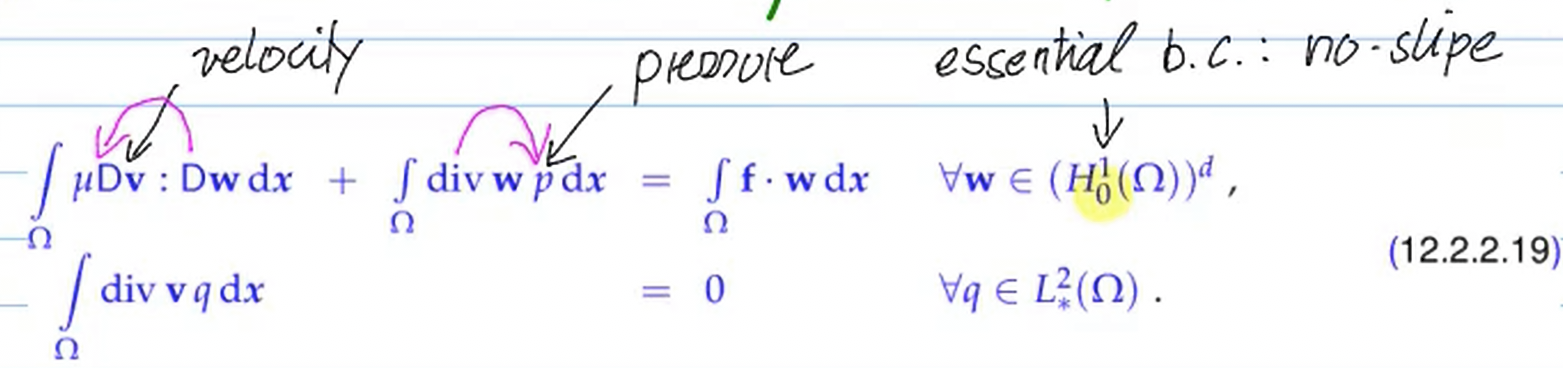 velocity pressure essential b.c.: no-slipe
∫_Ω μDv : Dw dx + ∫_Ω div w p dx = ∫_Ω f · w dx ∀w ∈ (H₀¹(Ω))ᵈ ,
(12.2.2.19)
∫_Ω div v q dx = 0 ∀q ∈ L²_*(Ω) .